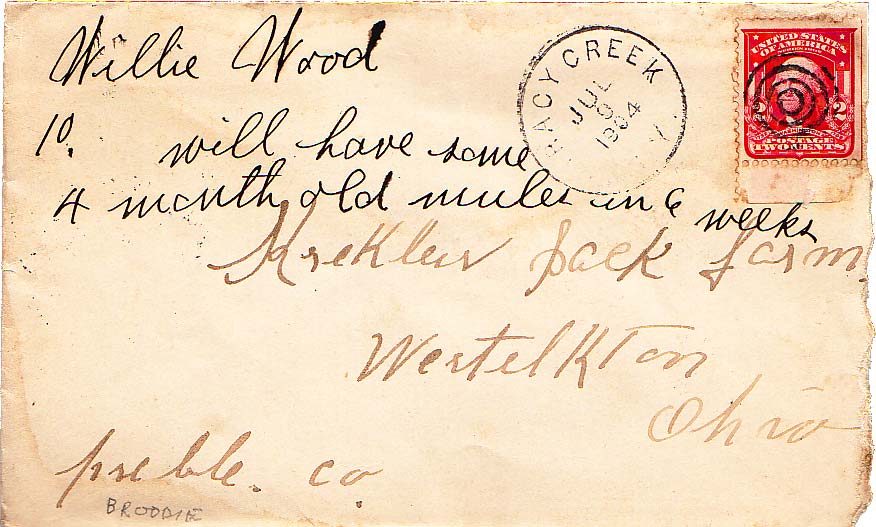 Willie Wood
10. will have some
4 month old mules in 6 weeks
RACY CREEK
JUL
1904
UNITED STATES
OF AMERICA
2 2
POSTAGE
TWO CENTS
Krekler jack farm
Westelkton
Ohio
preble. co
BRODDIE